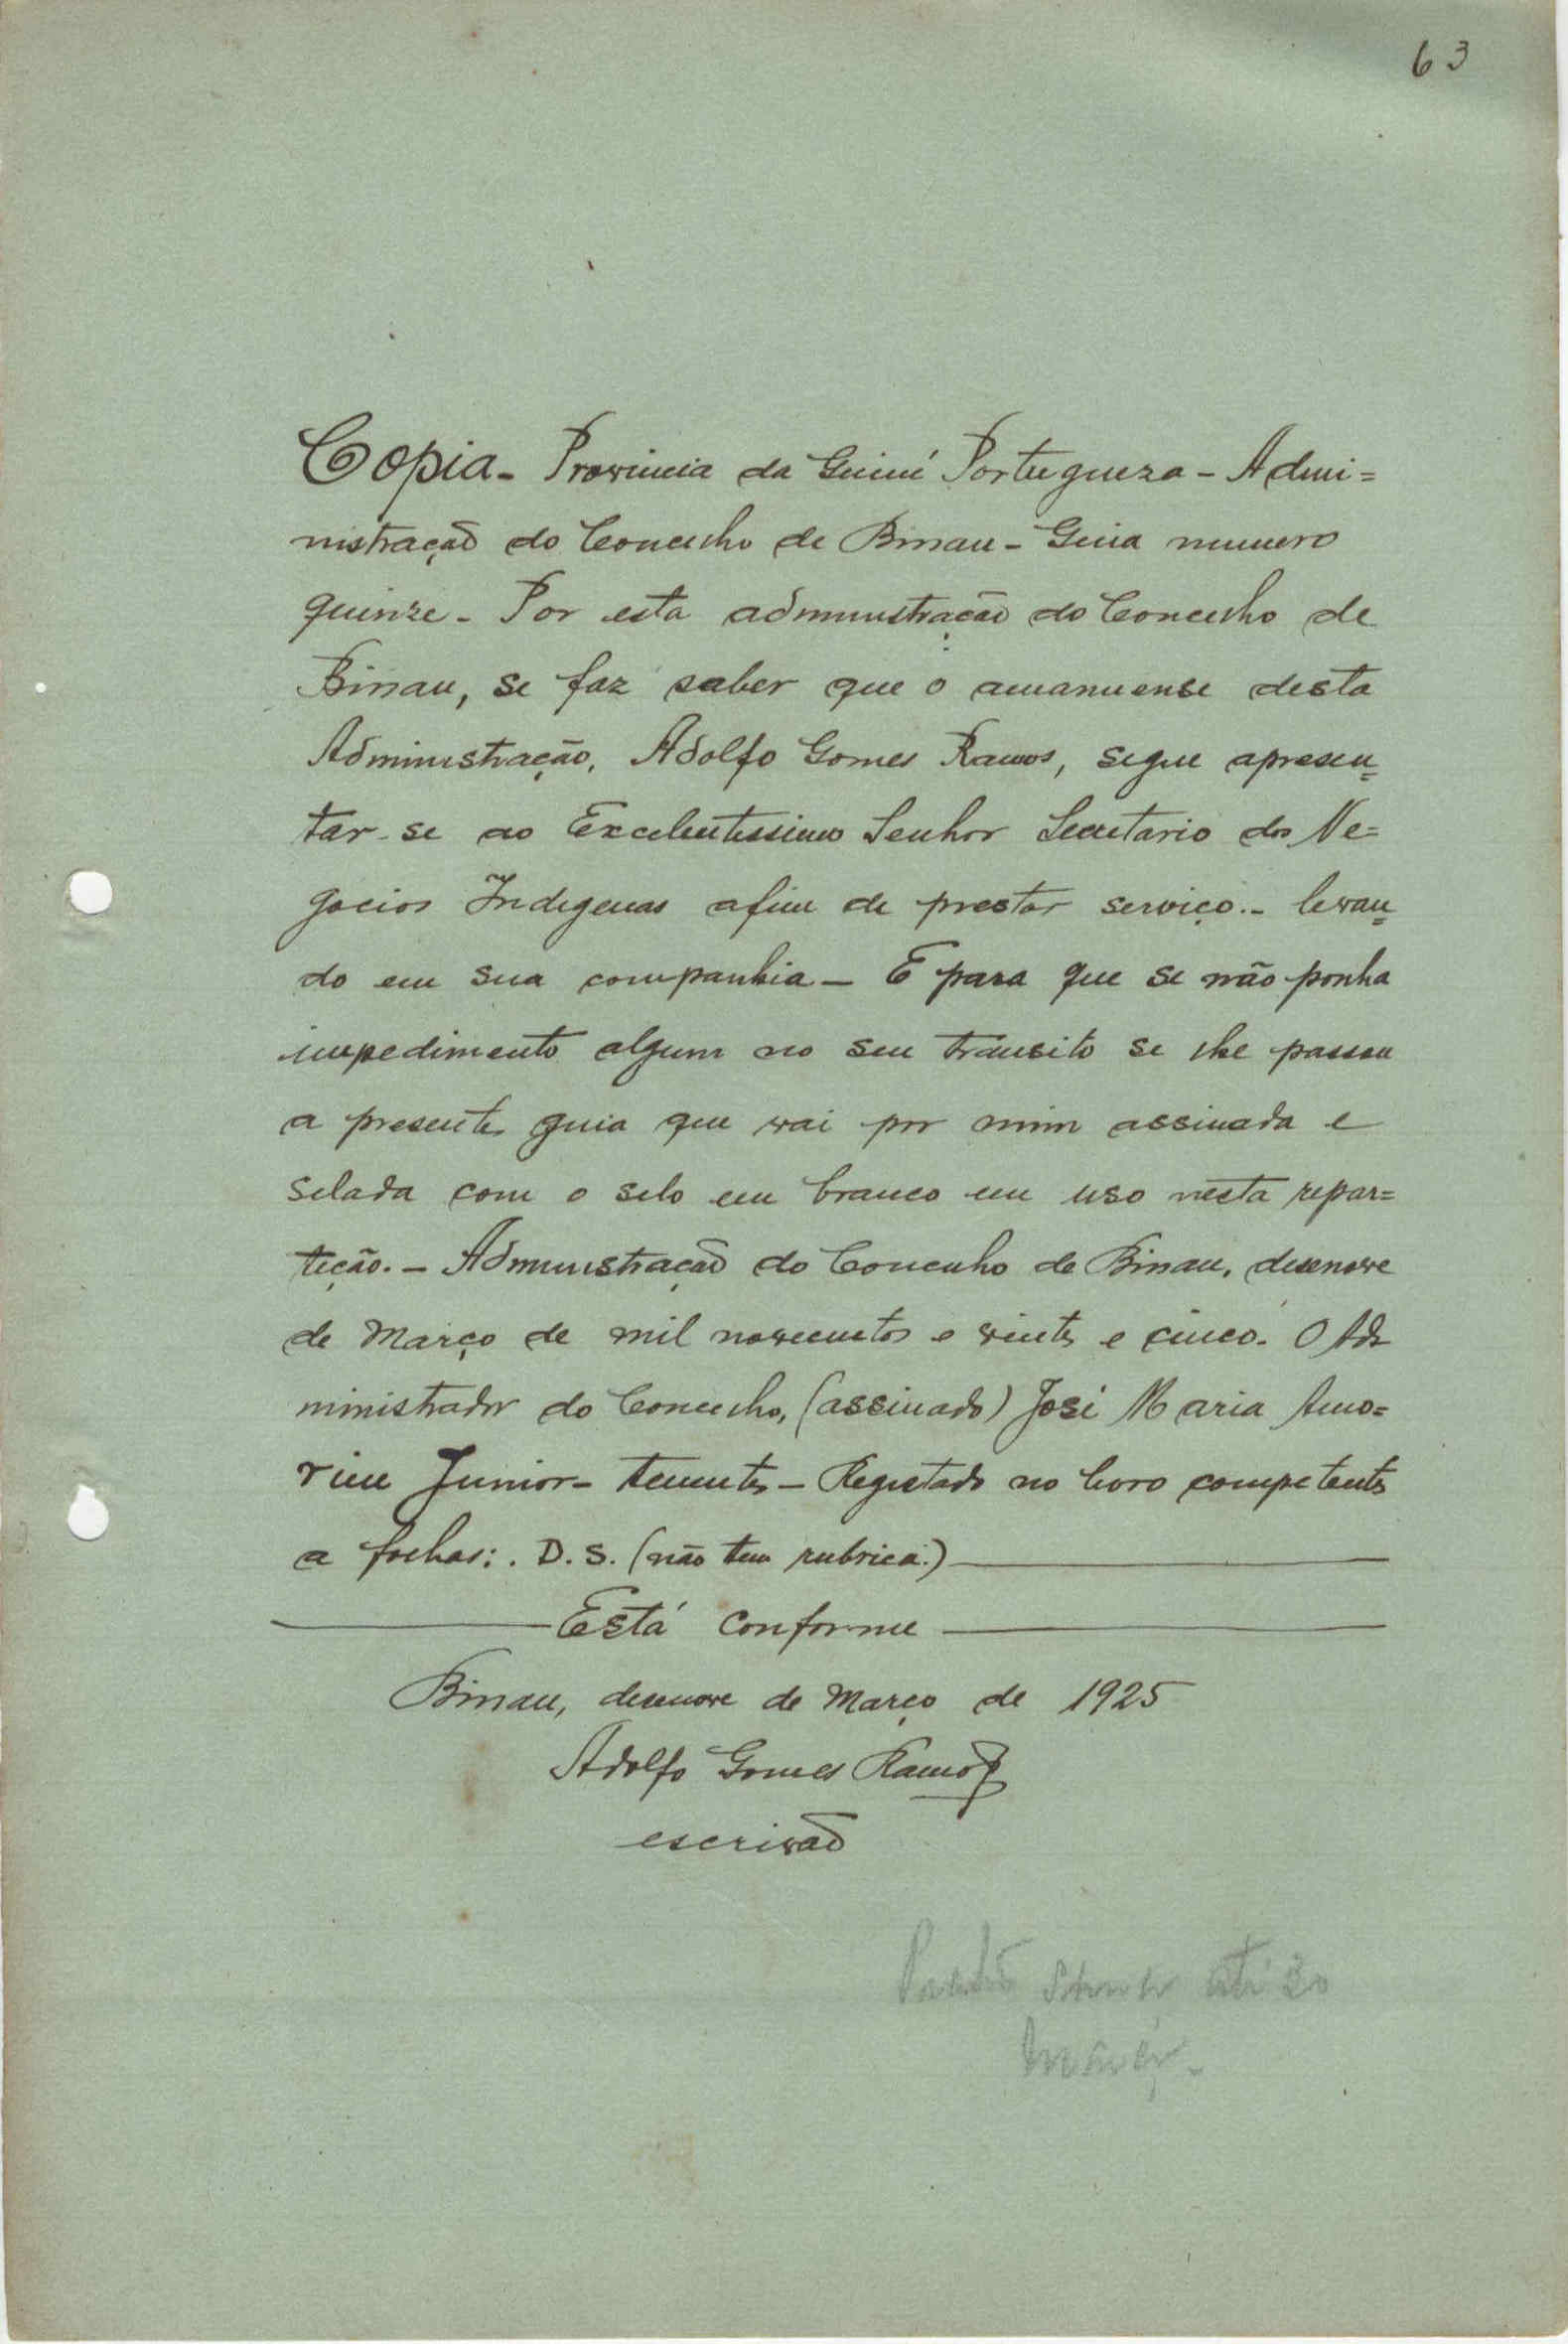 63
Copia - Provincia da Guiné Portugueza - Admi=
nistração do Concelho de Bissau - Guia numero
quinze - Por esta administração do Concelho de
Bissau, se faz saber que o amanuense desta
Administração, Adolfo Gomes Ramos, segue apresen=
tar-se ao Excelentissimo Senhor Secretario dos Ne=
gocios Indigenas afim de prestar serviço.- levan=
do em sua companhia - E para que se não ponha
impedimento algum no seu transito se lhe passou
a presente guia que vai por mim assinada e
selada com o selo em branco em uso nesta repar=
tição. - Administração do Concelho de Bissau, desenove
de Março de mil novecentos e vinte e cinco. O Ad
ministrador do Concelho, (assinado) José Maria Amo=
rim Junior - tenente - Registado no livro competente
a folhas: . D. S. (não tem rubrica.)
Está conforme
Bissau, desenove de Março de 1925
Adolfo Gomes Ramos
escrivão
até 30
Março.